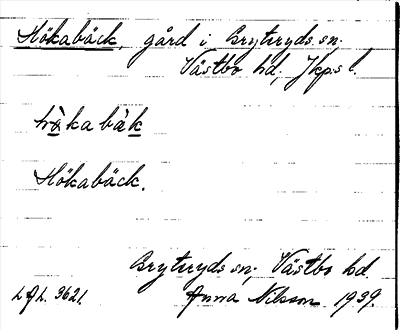 Hökabäck, gård i Bryteryds sn.
Västbo hd, Jkps l.
hökabäk
Hökabäck.
Bryteryds sn, Västbo hd.
L.A.L. 3621. Anna Nilsson 1939.